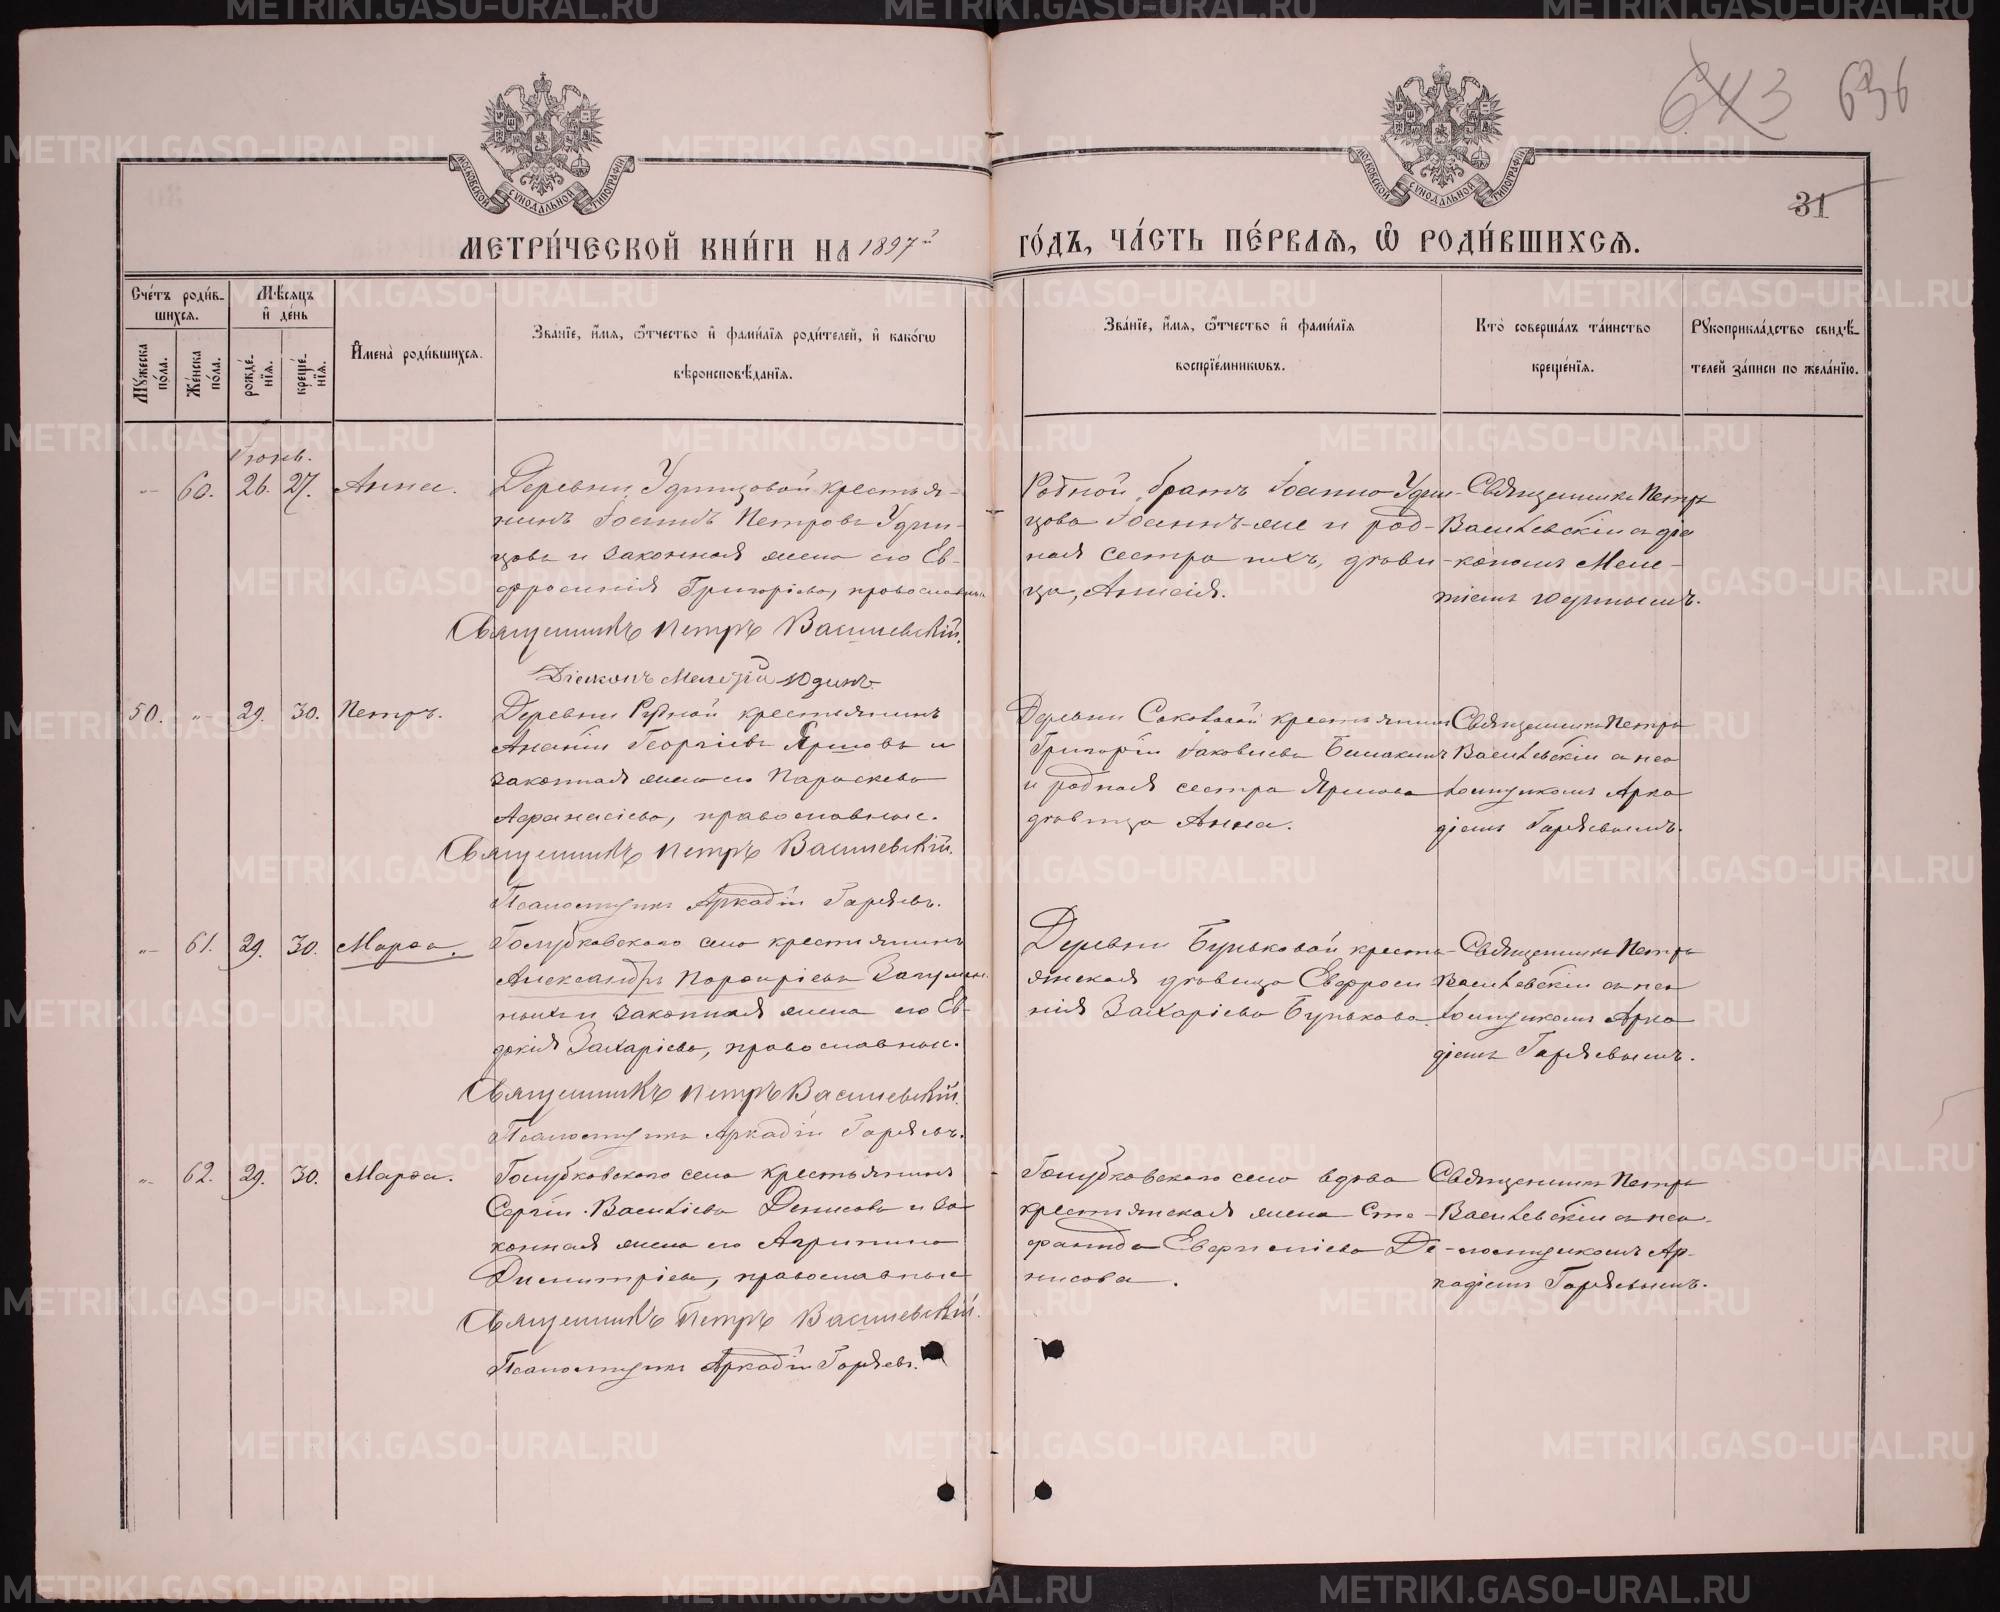 643 636
31
МОСКОВСКОЙ СѴНОДАЛЬНОЙ ТИПОГРАФІИ
МОСКОВСКОЙ СѴНОДАЛЬНОЙ ТИПОГРАФІИ
МЕТРИ́ЧЕСКОЙ КНИ́ГИ НА 1897й
ГО́ДЪ, ЧА́СТЬ ПЕ́РВАѦ, Ѡ РОДИ́ВШИХСѦ.
Сче́тъ роди́в-
шихсѧ.
Мꙋжеска по́ла.
Же́нска по́ла.
Мѣ́сѧцъ и҆ де́нь
рожде́-
нїѧ.
креще́-
нїѧ.
И҆мена̀ роди́вшихсѧ.
Зва́нїе, и҆́мѧ, ѻ҆́тчество и҆ фами́лїѧ роди́телей, и҆ како́гѡ
вѣроисповѣ́данїѧ.
Зва́нїе, и҆́мѧ, ѻ҆́тчество и҆ фами́лїѧ
воспрїе́мникѡвъ.
Кто̀ соверша́лъ та́инство
креще́нїѧ.
Рꙋкоприкла́дство свидѣ́-
телей за́писи по жела́нїю.
Іюнь.
„ 60. 26. 27. Анна.
Деревни Удинцовой крестья-
нинъ Іоаннъ Петровъ Удин-
цовъ и законная жена его Ев-
фросинія Григоріева, православные
Священникъ Петръ Василевскій.
Діаконъ Мелетій Юдинъ.
Родной братъ Іоанна Удин-
цова Іоаннъ-же и род-
ная сестра ихъ, дѣви-
ца, Анисія.
Священникъ Петръ
Василевскій съ діа
кономъ Меле-
тіемъ Юдинымъ.
50. „ 29. 30. Петръ.
Деревни Рудной крестьянинъ
Ананій Георгіевъ Яршовъ и
законная жена его Параскева
Афанасіева, православные.
Священникъ Петръ Василевскій.
Псаломщикъ Аркадій Гаряевъ.
Деревни Соковой крестьянинъ
Григорій Іаковлевъ
и родная сестра Яршова
дѣвица Анна.
Священникъ Петръ
Василевскій съ пса
ломщикомъ Арка
діемъ Гаряевымъ.
„ 61. 29. 30. Марѳа.
Голубковскаго села крестьянинъ
Александръ Порфиріевъ
и законная жена его Ев-
докія Захаріева, православные.
Священникъ Петръ Василевскій.
Псаломщикъ Аркадій Гаряевъ.
Деревни Буньковой кресть-
янская дѣвица Евфроси-
нія Захаріева Бунькова.
Священникъ Петръ
Василевскій съ пса
ломщикомъ Арка
діемъ Гаряевымъ.
„ 62. 29. 30. Марѳа.
Голубковскаго села крестьянинъ
Сергій Василіевъ Денисовъ и за-
конная жена его Агрипина
Димитріева, православные
Священникъ Петръ Василевскій.
Псаломщикъ Аркадій Гаряевъ.
Голубковскаго села вдова
крестьянская жена Сте-
фанида Де-
нисова.
Священникъ Петръ
Василевскій съ пса-
ломщикомъ Ар-
кадіемъ Гаряевымъ.
METRIKI.GASO-URAL.RU